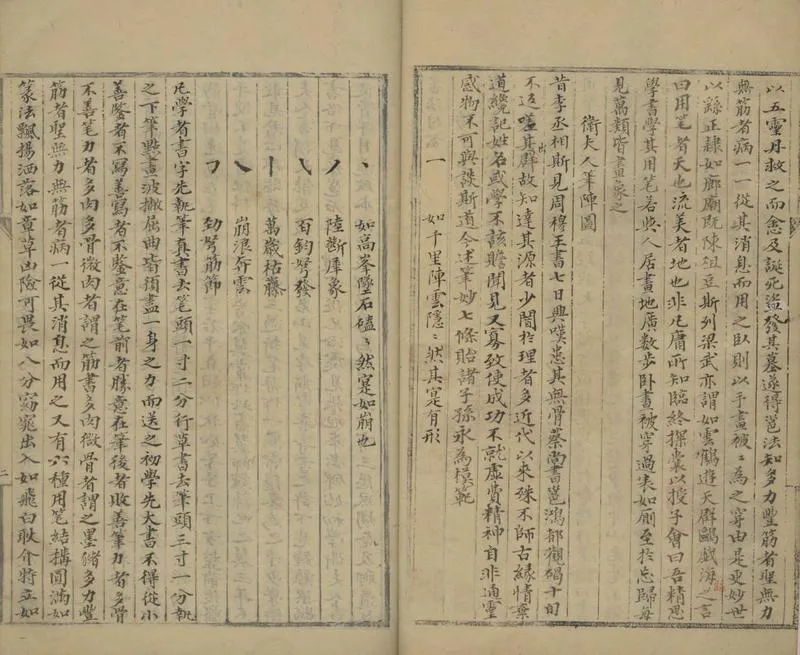 以五靈丹救之而愈及誕死盜發其墓遂得邕法知多力豐筋者聖無力
無筋者病一一從其消息而用之臥則以手畫被〻為之穿由是更妙世
以繇正隸如廊廟既陳俎豆斯列梁武亦謂如雲鶴遊天羣鷗戲海之言
曰用筆者天也流美者地也非凡庸所知臨終探囊以授子會曰吾精思
學書學其用筆若與人居畫地廣數步臥畫被穿過表如廁至於忘歸每
見萬類皆畫象之
衛夫人筆陣圖
昔李丞相斯見周穆王書七日興嘆患其無骨蔡尚書邕鴻都觀碣十旬
不返嗟其出羣故知達其源者少闇於理者多近代以來殊不師古緣情棄
道纔記姓名或學不該贍聞見又寡致使成功不就虛費精神自非通靈
感物不可與談斯道今述筆妙七條貽諸子孫永為模範
一 如千里陣雲隱〻然其寔有形
丶 如高峯墜石磕〻然寔如崩也
丿 陸斷犀象
㇂ 百鈞弩發
丨 萬歲枯藤
㇏ 崩浪奔雲
𠃌 勁弩筋節
凡學者書字先執筆真書去筆頭一寸二分行草書去筆頭三寸一分執
之下筆點畫波撇屈曲皆須盡一身之力而送之初學先大書不得從小
善鑒者不寫善寫者不鑒意在筆前者勝意在筆後者敗善筆力者多骨
不善筆力者多肉多骨微肉者謂之筋書多肉微骨者謂之墨豬多力豐
筋者聖無力無筋者病一從其消息而用之又有六種用筆結構圓滿如
篆法飄揚洒落如章草凶險可畏如八分窈窕出入如飛白耿介特立如
二